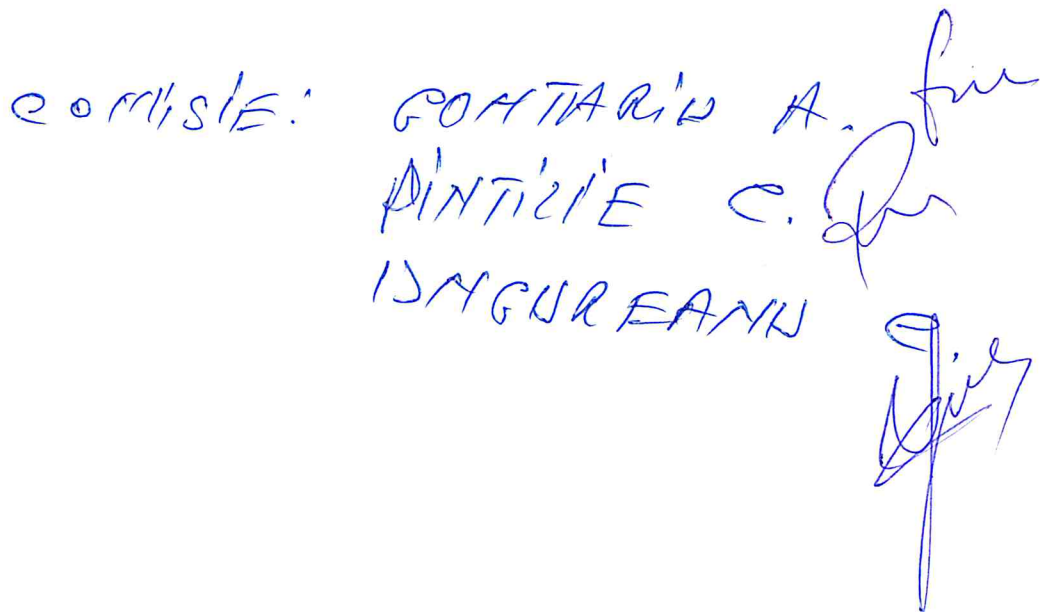 COMISIE: GONTARIU A.
PINTILIE C.
UNGUREANU C.